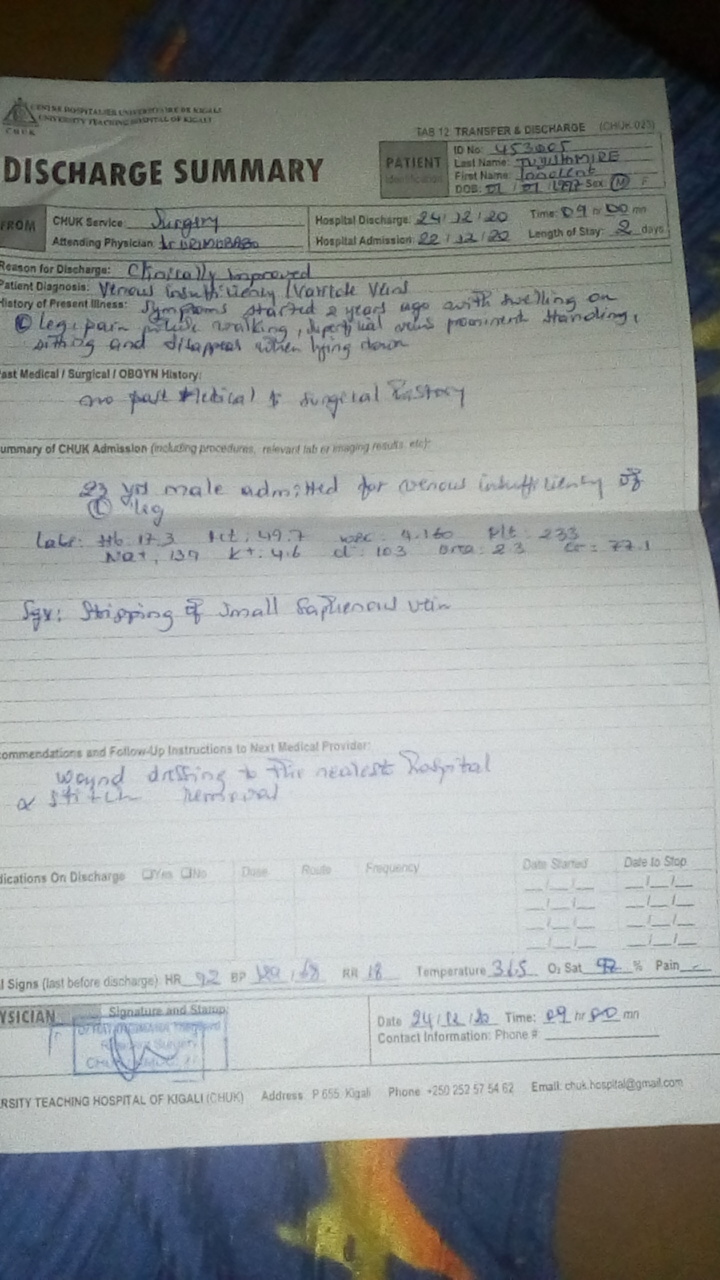 CENTRE HOSPITALIER UNIVERSITAIRE DE KIGALI
UNIVERSITY TEACHING HOSPITAL OF KIGALI
CHUK
TAB 12. TRANSFER & DISCHARGE (CHUK 023)
DISCHARGE SUMMARY
PATIENT
Identification
ID No:
Last Name:
First Name: Innocent
DOB: 01/01/1997 Sex: M F
FROM
CHUK Service: Surgery
Attending Physician: Dr
Hospital Discharge: 24/12/20 Time: 09 hr 00 mn
Hospital Admission: 22/12/20 Length of Stay: 2 days
Reason for Discharge: Clinically improved
Patient Diagnosis: Venous insufficiency /Varricle Veins
History of Present Illness: Symptoms started 2 years ago with swelling on
Ⓛ leg, pain walking, superficial veins prominent standing,
sitting and disappear when lying down
ast Medical / Surgical / OBGYN History:
no past Medical & surgical history
ummary of CHUK Admission (including procedures, relevant lab or imaging results, etc):
23 yrs male admitted for venous insufficiency of
Ⓛ leg
Labs: Hb: 17.3 Hct: 49.7 WBC: 4.160 Plt: 233
Na+: 139 K+: 4.6 Cl: 103 Urea: 2.3 Cr: 77.1
Sgx: Stripping of small Saphenous vein
ommendations and Follow-Up Instructions to Next Medical Provider:
wound dressing to the nearest hospital
& stitch removal
dications On Discharge ☐Yes ☐No Dose Route Frequency Date Started Date to Stop
l Signs (last before discharge) HR 92 BP RR 18 Temperature 36.5 O₂ Sat % Pain
YSICIAN
Signature and Stamp:
Date 24/12/20 Time: 09 hr 00 mn
Contact Information: Phone #:
RSITY TEACHING HOSPITAL OF KIGALI (CHUK) Address P 655 Kigali Phone +250 252 57 54 62 Email: chuk.hospital@gmail.com